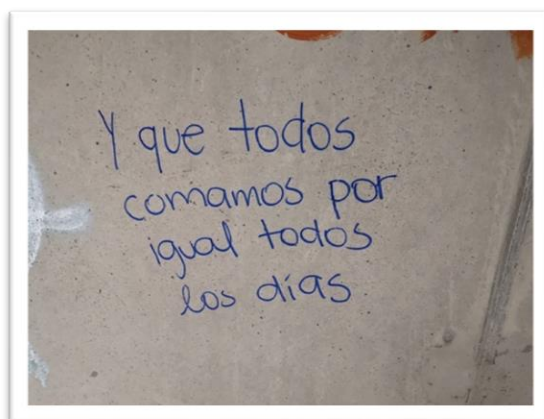 Y que todos
comamos por
igual todos
los días